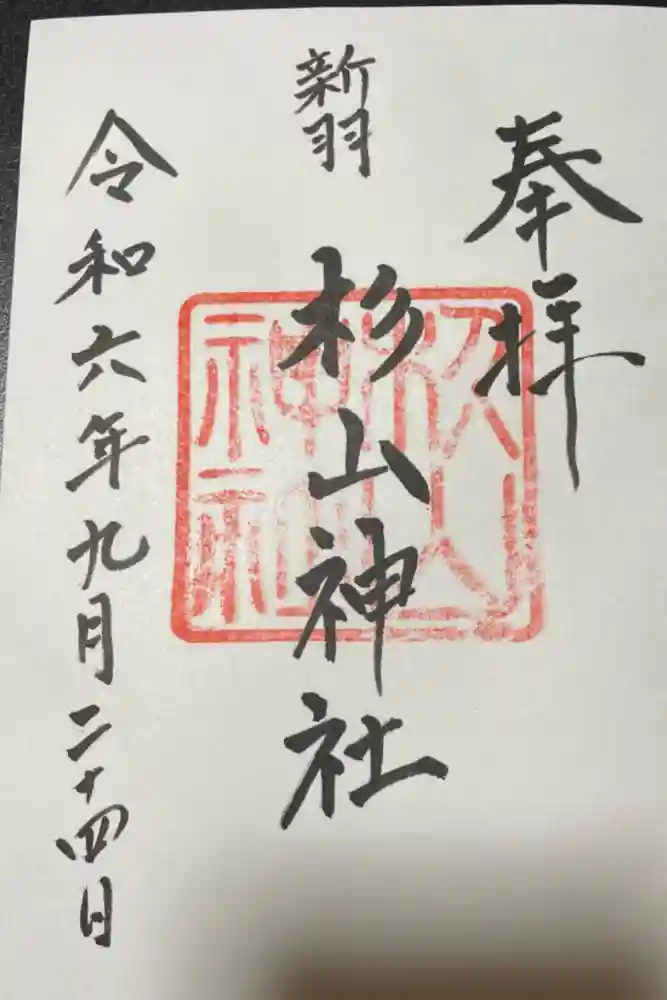 奉拝
新羽
杉山神社
杉山神社
令和六年九月二十四日